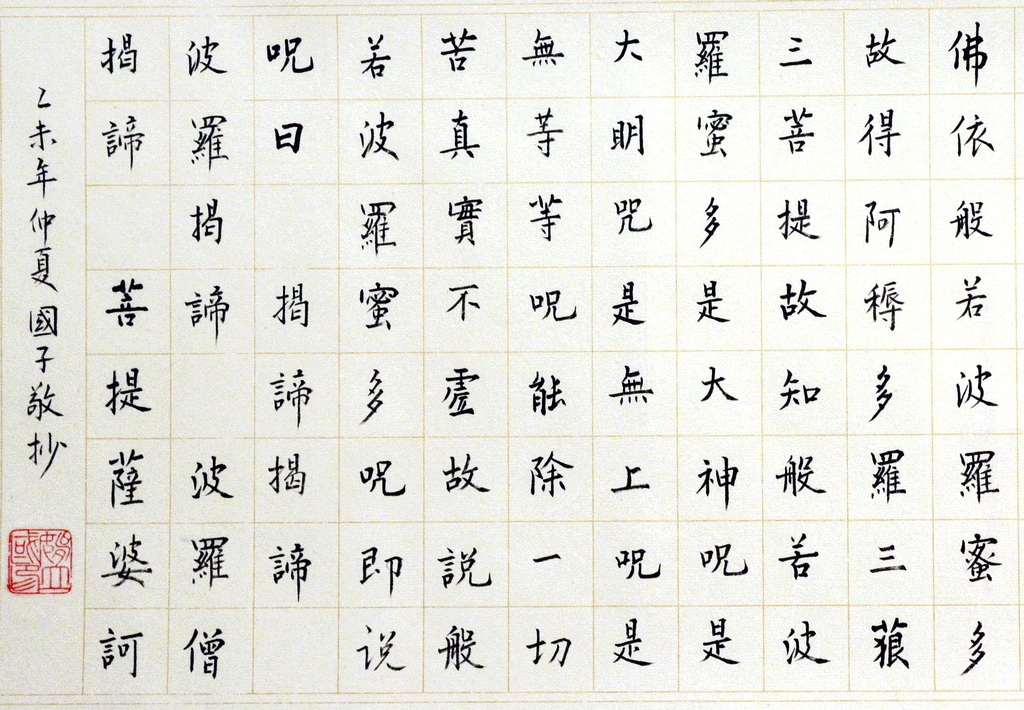 佛依般若波羅蜜多
故得阿耨多羅三藐
三菩提故知般若波
羅蜜多是大神呪是
大明呪是無上呪是
無等等呪能除一切
苦真實不虛故説般
若波羅蜜多呪即说
呪曰 揭諦揭諦
波羅揭諦 波羅僧
揭諦 菩提薩婆訶
乙未年仲夏國子敬抄